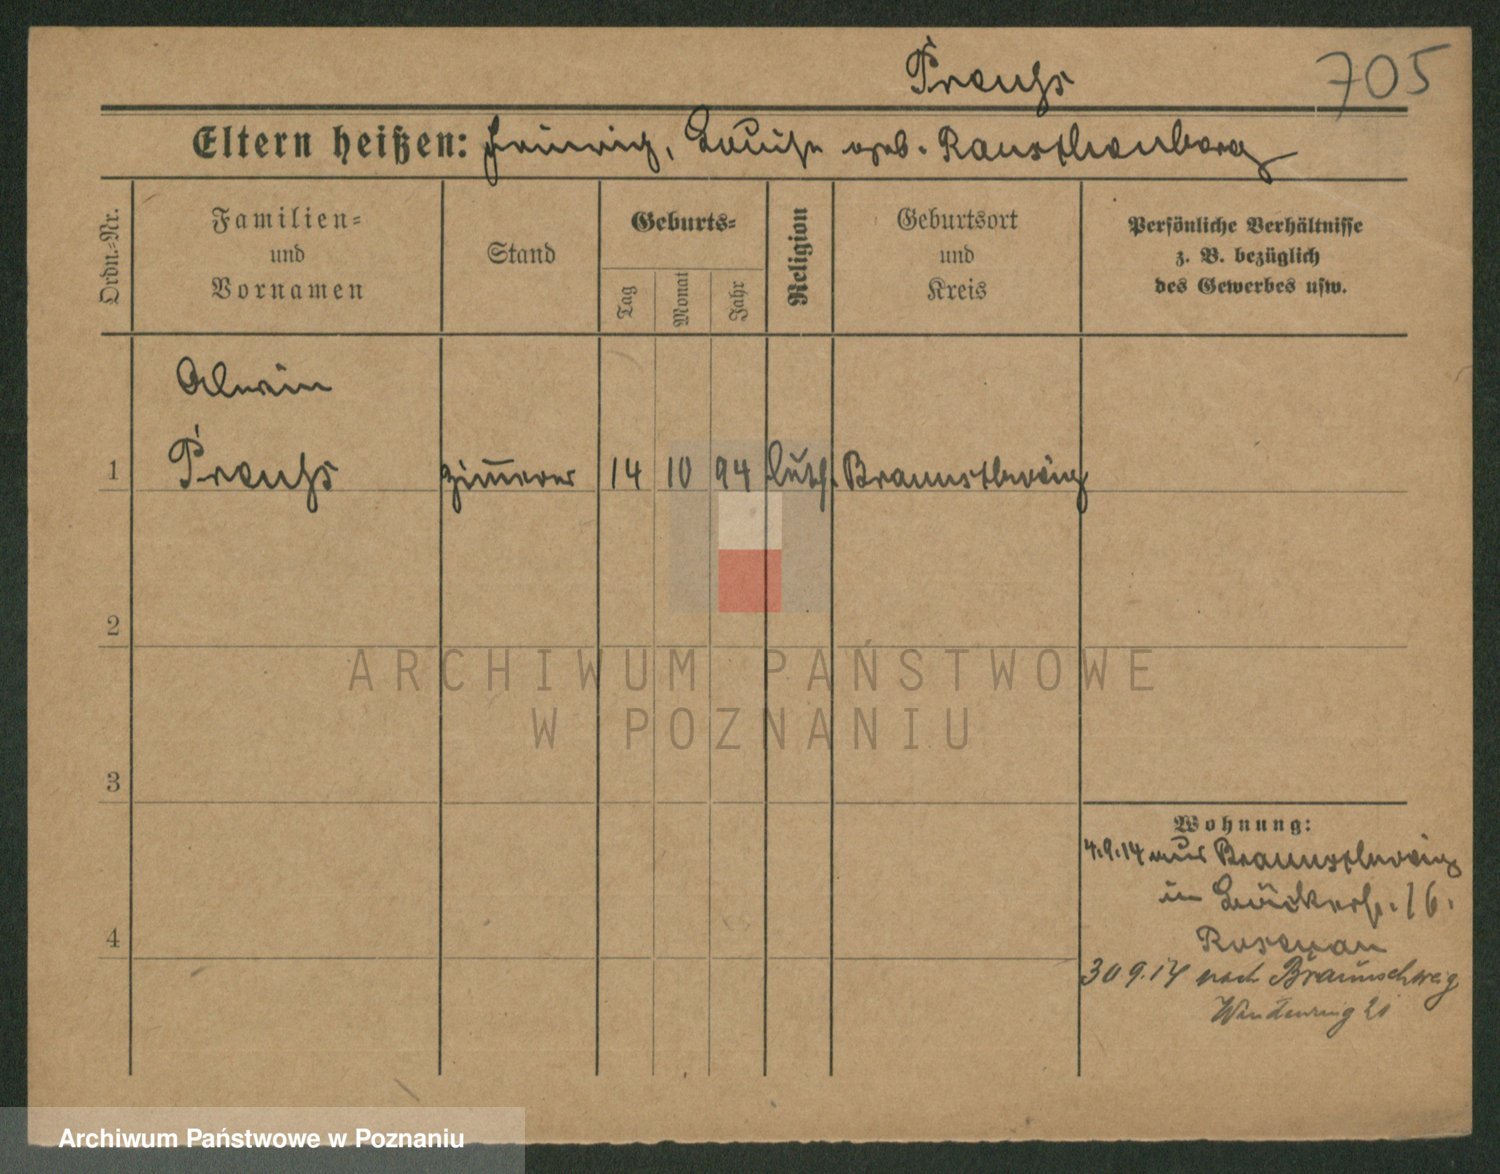 Preuhs
705
Eltern heißen: Heinrich, Louise geb. Rauschenberg
Ordn.-Nr.
Familien-
und
Vornamen
Stand
Geburts-
Tag
Monat
Jahr
Religion
Geburtsort
und
Kreis
Persönliche Verhältnisse
z. B. bezüglich
des Gewerbes usw.
Alwin
1 Preuhs Zimmerer 14 10 94 luth. Braunschweig
2
3
4
Wohnung:
4.9.14 aus Braunschweig
in Bäckerstr. 16.
30 9.14 nach Braunschweig
ARCHIWUM PAŃSTWOWE
W POZNANIU
Archiwum Państwowe w Poznaniu